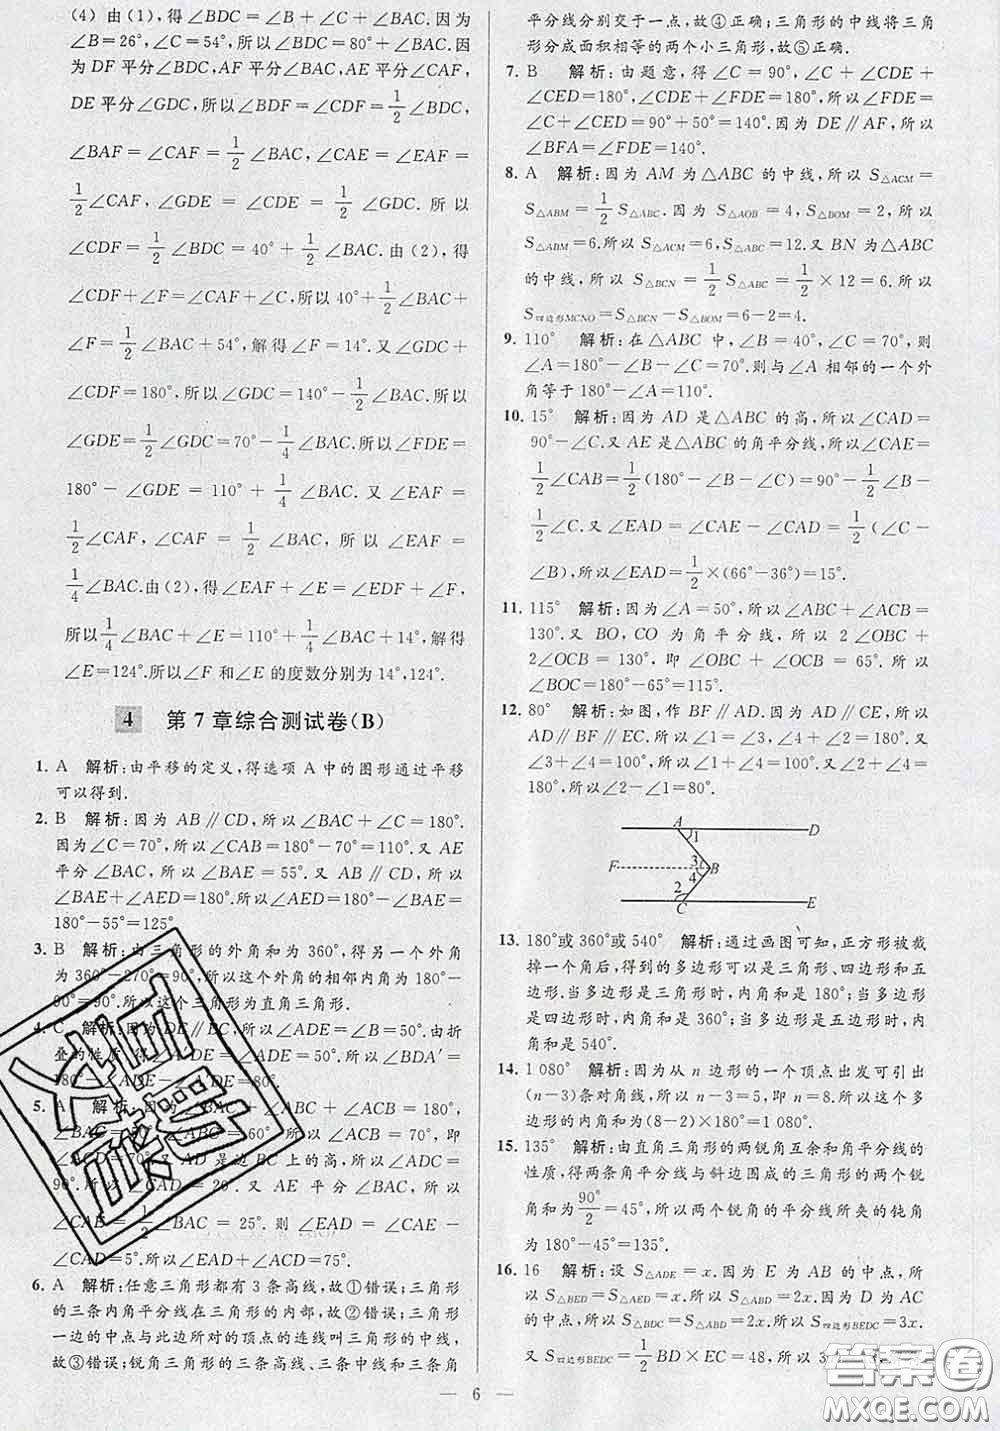 (4) 由(1),得∠BDC=∠B+∠C+∠BAC.因为
∠B=26°,∠C=54°,所以∠BDC=80°+∠BAC.因
为DF平分∠BDC,AF平分∠BAC,AE平分∠CAF,
DE平分∠GDC,所以∠BDF=∠CDF=1/2∠BDC,
∠BAF=∠CAF=1/2∠BAC,∠CAE=∠EAF=
1/2∠CAF,∠GDE=∠CDE=1/2∠GDC.所以
∠CDF=1/2∠BDC=40°+1/2∠BAC.由(2),得
∠CDF+∠F=∠CAF+∠C,所以40°+1/2∠BAC+
∠F=1/2∠BAC+54°,解得∠F=14°.又∠GDC+
∠CDF=180°,所以∠GDC=140°-1/2∠BAC.所以
∠GDE=1/2∠GDC=70°-1/4∠BAC.所以∠FDE=
180°-∠GDE=110°+1/4∠BAC.又∠EAF=
1/2∠CAF,∠CAF=1/2∠BAC,所以∠EAF=
1/4∠BAC.由(2),得∠EAF+∠E=∠EDF+∠F,
所以1/4∠BAC+∠E=110°+1/4∠BAC+14°,解得
∠E=124°.所以∠F和∠E的度数分别为14°,124°.
4 第7章综合测试卷(B)
1. A 解析:由平移的定义,得选项A中的图形通过平移
可以得到.
2. B 解析:因为AB∥CD,所以∠BAC+∠C=180°.
因为∠C=70°,所以∠BAC=180°-70°=110°.又AE
平分∠BAC,所以∠BAE=55°.又AB∥CD,所以
∠BAE+∠AED=180°.所以∠AED=180°-∠BAE=
180°-55°=125°.
3. B 解析:由三角形的外角和为360°,得另一个外角
为360°-270°=90°,所以这个外角的相邻内角为180°-
90°=90°.所以这个三角形为直角三角形.
4. C 解析:因为DE∥BC,所以∠ADE=∠B=50°.由折
叠的性质,得∠A′DE=∠ADE=50°.所以∠BDA′=
180°-∠A′DE-∠ADE=80°.
5. A 解析:因为∠BAC+∠ABC+∠ACB=180°,
∠BAC=50°,∠ABC=60°,所以∠ACB=70°,即
∠ACD=70°.又AD是边BC上的高,所以∠ADC=
90°.所以∠CAD=20°.又AE平分∠BAC,所以
∠CAE=1/2∠BAC=25°.则∠EAD=∠CAE-
∠CAD=5°.所以∠EAD+∠ACD=75°.
6. A 解析:任意三角形都有3条高线,故①错误;三角形
的三条内角平分线在三角形的内部,故②错误;三角形
一边的中点与此边所对的顶点的连线叫三角形的中线,
故③错误;锐角三角形的三条高线、三条中线和三条角
平分线分别交于一点,故④正确;三角形的中线将三角
形分成面积相等的两个小三角形,故⑤正确.
7. B 解析:由题意,得∠C=90°,∠C+∠CDE+
∠CED=180°,∠CDE+∠FDE=180°,所以∠FDE=
∠C+∠CED=90°+50°=140°.因为DE∥AF,所以
∠BFA=∠FDE=140°.
8. A 解析:因为AM为△ABC的中线,所以S△ACM=
S△ABM=1/2S△ABC.因为S△AOB=4,S△BOM=2,所以
S△ABM=6.所以S△ACM=6,S△ABC=12.又BN为△ABC
的中线,所以S△BCN=1/2S△ABC=1/2×12=6.所以
S四边形MCNO=S△BCN-S△BOM=6-2=4.
9. 110° 解析:在△ABC中,∠B=40°,∠C=70°,则
∠A=180°-∠B-∠C=70°.则与∠A相邻的一个外
角等于180°-∠A=110°.
10. 15° 解析:因为AD是△ABC的高,所以∠CAD=
90°-∠C.又AE是△ABC的角平分线,所以∠CAE=
1/2∠CAB=1/2(180°-∠B-∠C)=90°-1/2∠B-
1/2∠C.又∠EAD=∠CAE-∠CAD=1/2(∠C-
∠B),所以∠EAD=1/2×(66°-36°)=15°.
11. 115° 解析:因为∠A=50°,所以∠ABC+∠ACB=
130°.又BO,CO为角平分线,所以2∠OBC+
2∠OCB=130°,即∠OBC+∠OCB=65°.所以
∠BOC=180°-65°=115°.
12. 80° 解析:如图,作BF∥AD.因为AD∥CE,所以
AD∥BF∥EC.所以∠1=∠3,∠4+∠2=180°.又
∠3+∠4=100°,所以∠1+∠4=100°,∠2+∠4=
180°.所以∠2-∠1=80°.
A D
1
F 3 B
4
2
C E
13. 180°或360°或540° 解析:通过画图可知,正方形被裁
掉一个角后,得到的多边形可以是三角形、四边形和五
边形.当多边形是三角形时,内角和是180°;当多边形
是四边形时,内角和是360°;当多边形是五边形时,
内角和是540°.
14. 1 080° 解析:因为从n边形的一个顶点出发可引出
(n-3)条对角线,所以n-3=5,即n=8.所以这个多
边形的内角和为(8-2)×180°=1 080°.
15. 135° 解析:由直角三角形的两锐角互余和角平分线的
性质,得两条角平分线与斜边围成的三角形的两个锐
角和为90°/2=45°,所以两个锐角的平分线所夹的钝角
为180°-45°=135°.
16. 16 解析:设S△ADE=x.因为E为AB的中点,所
以S△BED=S△AED=x.所以S△ABD=2x.因为D为AC
的中点,所以S△BDC=S△ABD=2x.所以S四边形BEDC=3x.
又S四边形BEDC=1/2BD×EC=48,所以3
答案圈
MXQE.COM
6